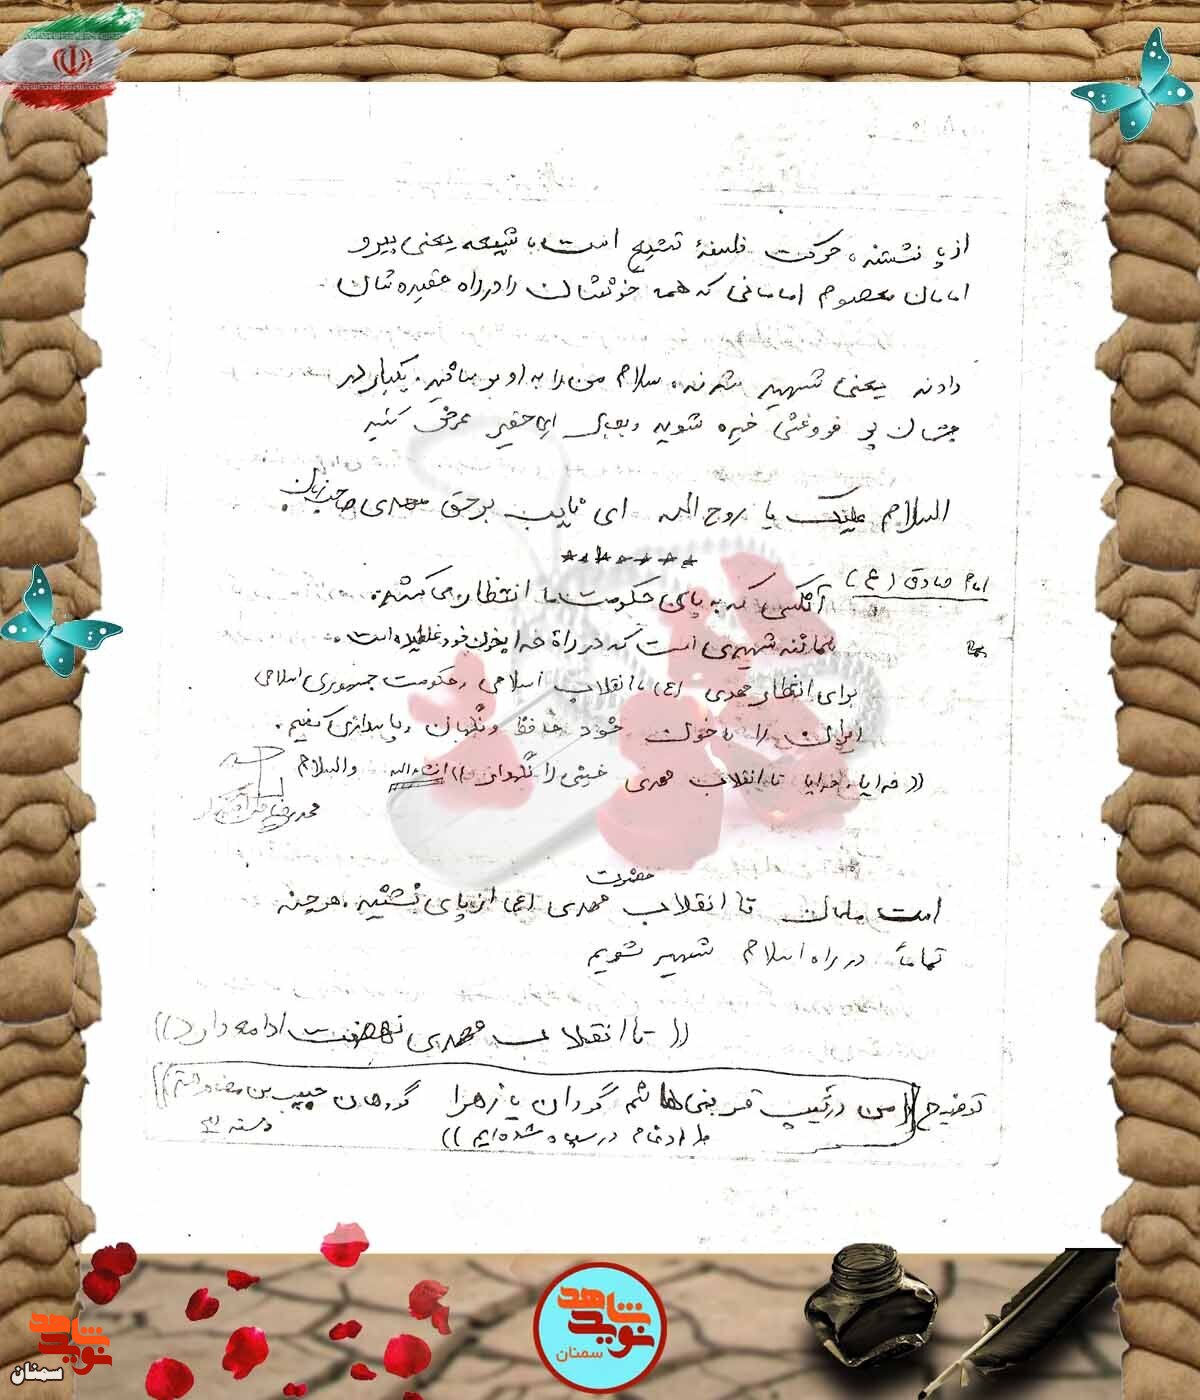 از پا نشستند، حرکت فلسفهٔ تشیع است، شیعه یعنی پیرو
امامان معصوم امامانی که همه خونشان را در راه عقیده‌شان
دادند یعنی شهید شدند، سلام من را به او برسانید. یکبار در
چشمان پر فروغش خیره شوید و بجای این حقیر عرض کنید
السلام علیک یا روح الله ای نایب برحق مهدی صاحب زمان
*******
امام صادق (ع)
آنکس که به پای حکومت ما انتظار می‌کشد،
همانند شهیدی است که در راه خدا بخون خود غلطیده است،
برای انتظار مهدی (عج) انقلاب اسلامی و حکومت جمهوری اسلامی
ایران را با خون خود حافظ و نگهبان و پاسداری کنیم.
((خدایا، خدایا تا انقلاب مهدی خمینی را نگهدار)) انشاءالله والسلام
محمدرضا
امت مسلمان تا انقلاب حضرت مهدی (عج) از پای ننشنید، هر چند
تماماً در راه اسلام شهید شویم
((تا انقلاب مهدی نهضت ادامه دارد))
توضیح ((من در تیپ قمر بنی‌هاشم گردان یا زهرا گروهان حبیب بن مظاهر
دسته
ادغام در سپاه شده‌ایم))
شاهد
نوید
سمنان
شاهد
نوید
سمنان